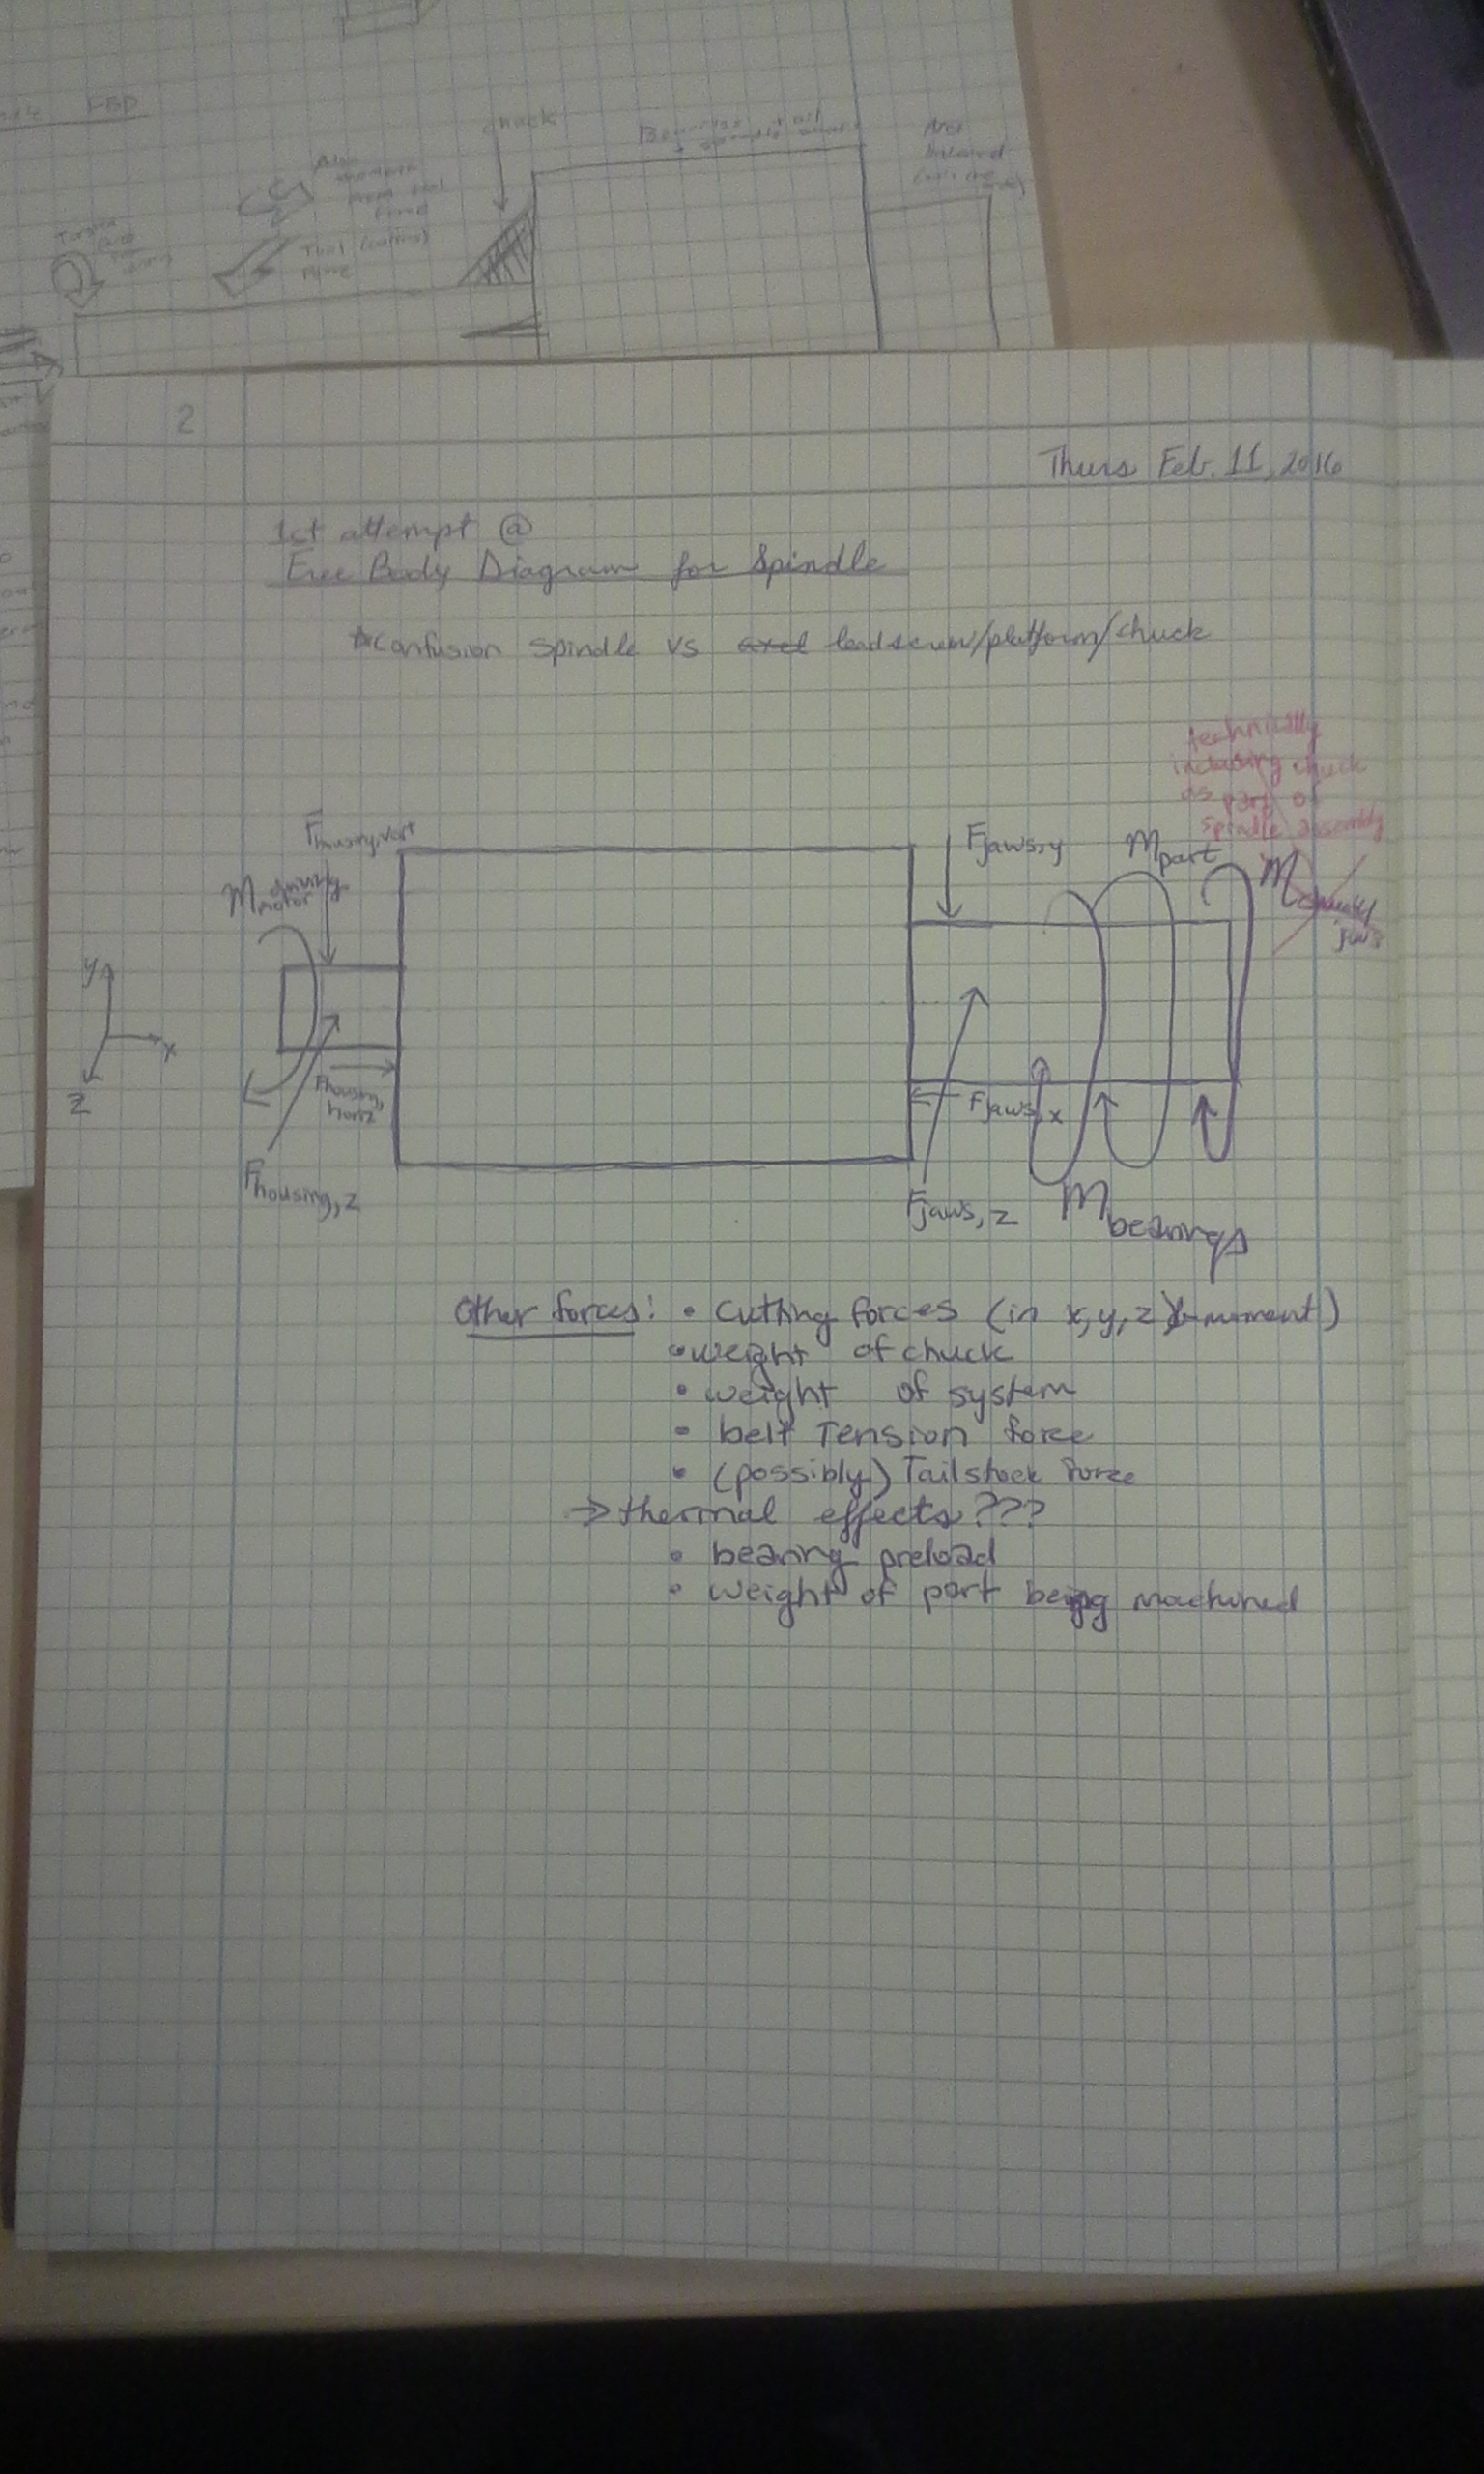 FBD
chuck
Also
from tool
Tool (cutting)
force
2
Thurs Feb. 11, 2016
1st attempt @
Free Body Diagram for Spindle
*Confusion spindle vs axel leadscrew/platform/chuck
technically
including chuck
as part of
spindle assembly
Fhousing,vert
Fjaws,y
Mpart
M
jaws
Mdriving
motor
y
x
z
Fhousing,
horiz
Fjaws,x
Fhousing,z
Fjaws,z
Mbearings
Other forces: • cutting forces (in x,y,z & moment)
• weight of chuck
• weight of system
• belt Tension force
• (possibly) Tailstock force
→ thermal effects???
• bearing preload
• weight of part being machined